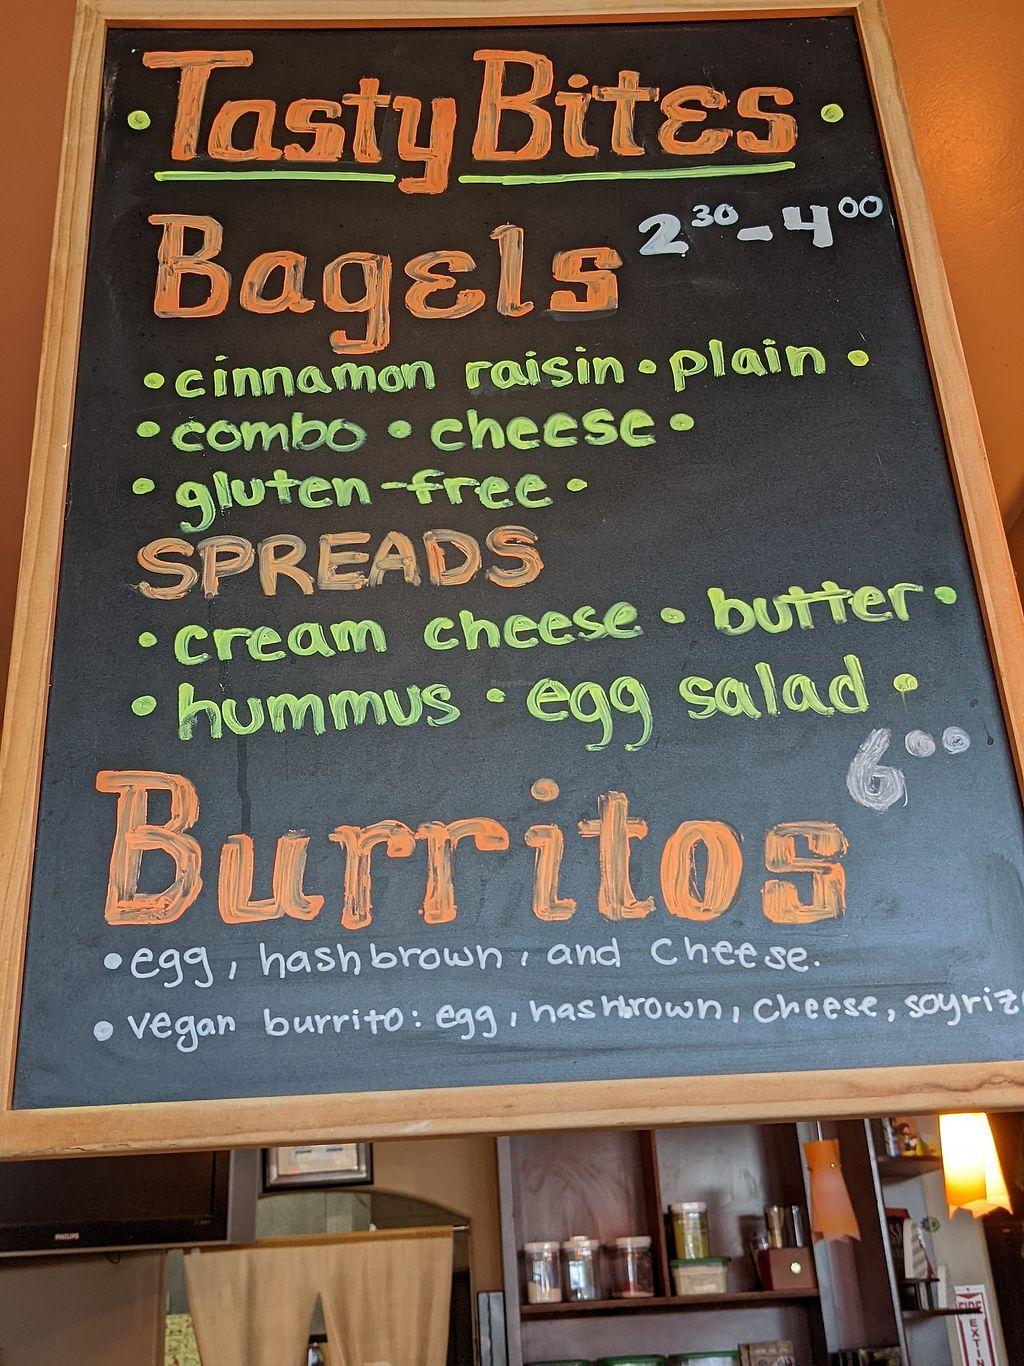 • Tasty Bites •
Bagels 2³⁰ - 4⁰⁰
• cinnamon raisin • plain •
• combo • cheese •
• gluten-free •
SPREADS
• cream cheese • butter •
• hummus • egg salad •
Burritos 6⁰⁰
• egg, hashbrown, and cheese.
• vegan burrito: egg, hashbrown, cheese, soyriz
PHILIPS
FIRE
EXTI